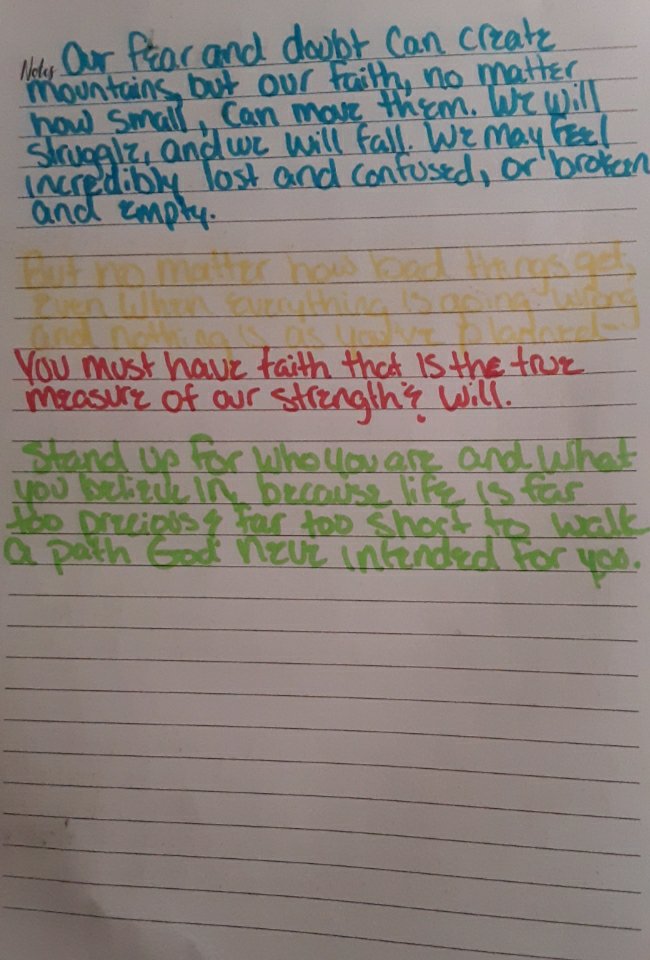 Notes Our fear and doubt can create
mountains, but our faith, no matter
how small, can move them. We will
struggle, and we will fall. We may feel
incredibly lost and confused, or broken
and empty.
But no matter how bad things get,
even when everything is going wrong
and nothing is as you've planned...
You must have faith that is the true
measure of our strength & will.
Stand up for who you are and what
you believe in, because life is far
too precious & far too short to walk
a path God never intended for you.